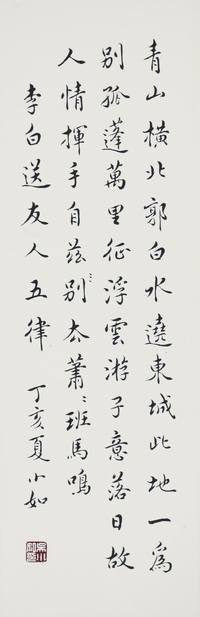 青山橫北郭白水遶東城此地一為
別孤蓬萬里征浮雲游子意落日故
人情揮手自茲別去蕭〻班馬鳴
李白送友人五律
丁亥夏小如